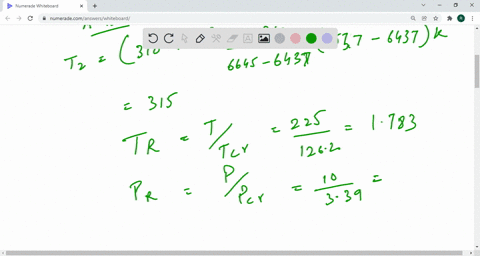 Numerade Whiteboard
numerade.com/answers/whiteboard/
T₂ = (310 6645 - 6437 - 6437) k
= 315
T_R = T/T_cr = 225/126.2 = 1.783
P_R = P/P_cr = 10/3.39 =